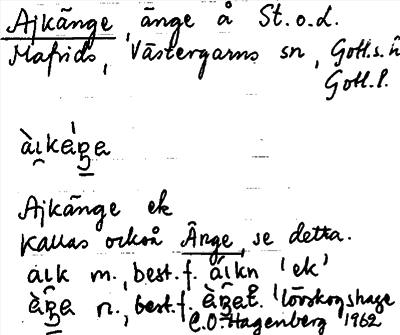 Ajkänge, änge å St. o. L.
Mafrids, Västergarns sn, Gotl. s. h
Gotl. l.
àikäŋe
Ajkänge ek
Kallas också Änge, se detta.
aik m., best. f. áikn 'ek'
äŋe n., best. f. äŋet. 'lövskogshage
C.O. Hagenberg 1962